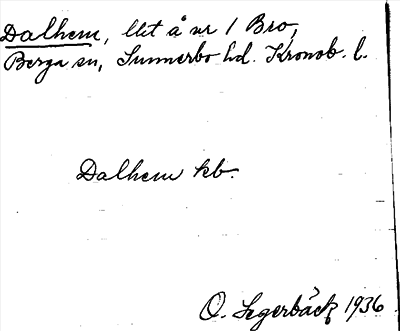 Dalhem, lht å nr 1 Bro,
Berga sn, Sunnerbo hd. Kronob. l.
Dalhem kb.
O. Segerbäck 1936